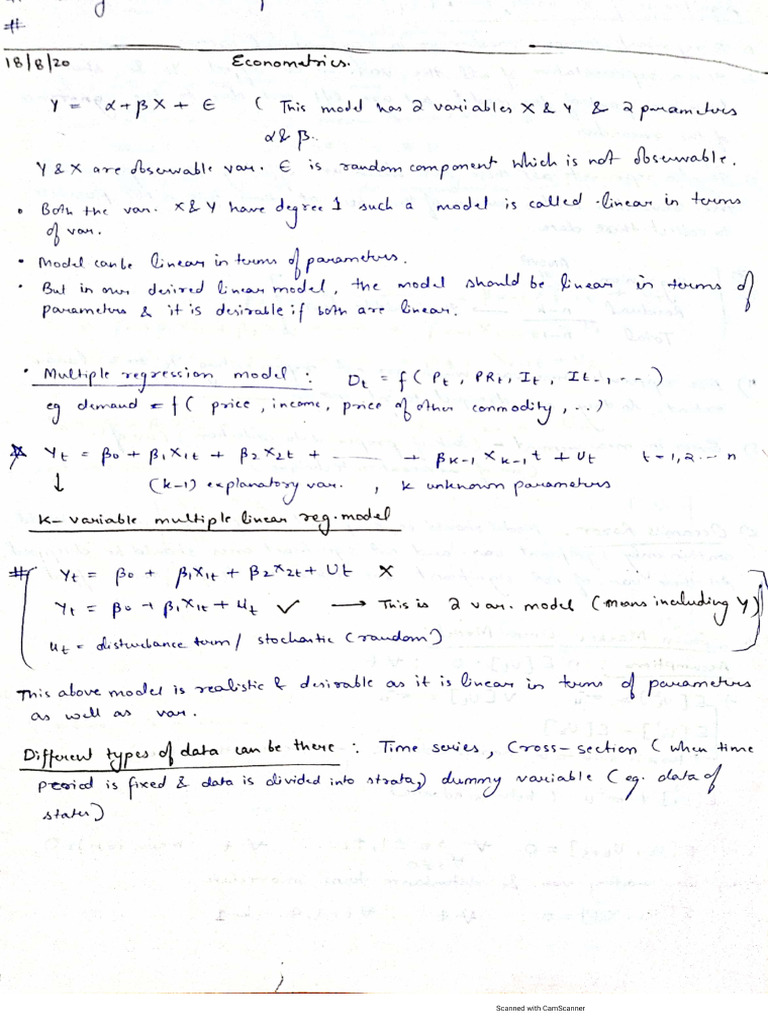 #
18/8/20 Econometrics.
Y = α + βX + ∈ ( This model has 2 variables X & Y & 2 parameters
α & β.
Y & X are observable var. ∈ is random component which is not observable.
• Both the var. X & Y have degree 1 such a model is called linear in terms
of var.
• Model can be linear in terms of parameters.
• But in our desired linear model, the model should be linear in terms of
parameters & it is desirable if both are linear.
• Multiple regression model : Dt = f( Pt, PRt, It, It-1, -- )
eg demand = f( price, income, price of other commodity, ..)
☆ Yt = β0 + β1X1t + β2X2t + ...... + βk-1 Xk-1t + Ut t=1,2...n
↓ (k-1) explanatory var. , k unknown parameters
K- variable multiple linear reg. model
# Yt = β0 + β1X1t + β2X2t + Ut ×
Yt = β0 + β1X1t + Ut ✓ → This is 2 var. model (means including Y)
Ut = disturbance term / stochastic (random)
This above model is realistic & desirable as it is linear in terms of parameters
as well as var.
Different types of data can be there : Time series, Cross-section ( when time
period is fixed & data is divided into strata,) dummy variable ( eg. data of
states)
Scanned with CamScanner